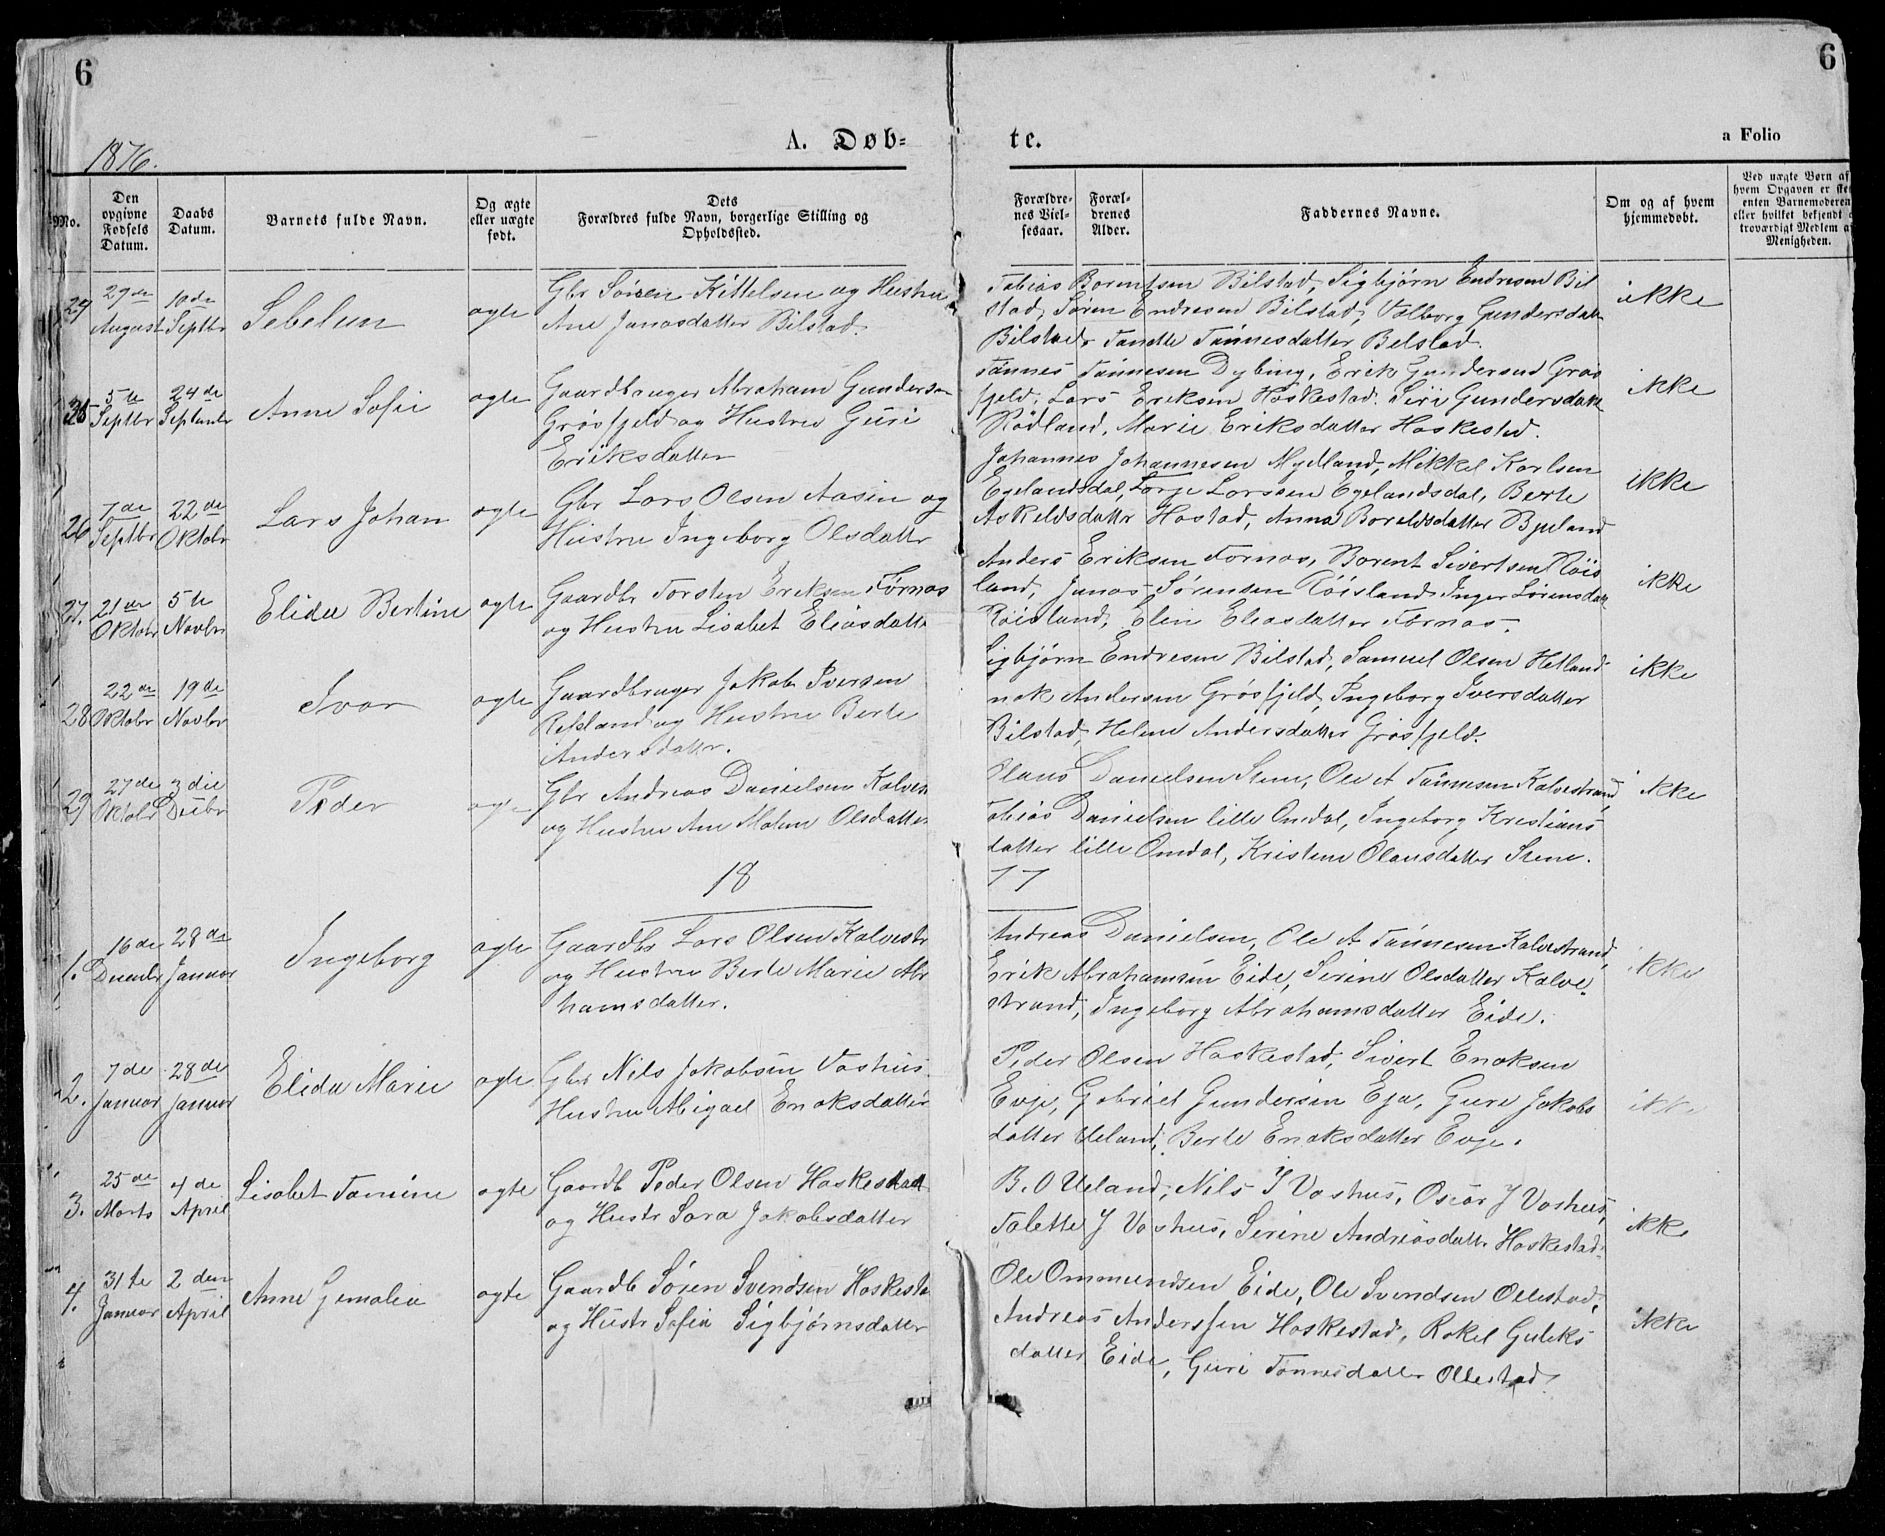 6
6
1876.
A. Døb-
te.
a Folio
No.
Den opgivne Fødsels Datum.
Daabs Datum.
Barnets fulde Navn.
Og ægte eller uægte født.
Dets Forældres fulde Navn, borgerlige Stilling og Opholdssted.
Forældrenes Vielsesaar.
Forældrenes Alder.
Faddernes Navne.
Om og af hvem hjemmedøbt.
Ved uægte Børn af hvem Opgaven er enten Barnemoderen eller hvilket bekjendt troværdigt Medlem Menigheden.
29de August
10de Septbr
Sebelun
ægte
Gbr Sören Kittelsen og Hustru
Ane Janasdatter Bilstad.
Tobias Borentsen Bilstad, Sigbjørn Endresen Bil
stad, Søren Endresen Bilstad, Valborg Gundersdatt
Bilstad, Tonette Tönnesdatter Belstad.
ikke
25
5te Septbr
24de September
Anne Sofie
ægte
Gaardbruger Abraham Gundersen
Grøsfjeld og Hustru Guri
Eriksdatter
Tønnes Tønnesen Dybing, Erik Gundersen Gros
fjeld, Lars Eriksen Hoskestad. Siri Gundersdatt
Rødland, Marie Eriksdatter Hoskestad.
ikke
26
7de Septbr
22de Oktobr
Lars Johan
ægte
Gbr Lars Olsen Aasin og
Hustru Ingeborg Olsdattr
Johannes Johannesen Mydland, Mikkel Karlsen
Egelandsdal, Torje Larssen Egelandsdal, Berte
Askeldsdattr Hostad, Anna Boreldsdatter Bjuland
ikke
27.
21de Oktobr
5te Novbr
Elida Bertine
ægte
Gaardbr Torsten Eriksen Førnos
og Hustru Lisabet Eliasdattr
Anders Eriksen Fornos, Borent Sivertsen Röis
land, Janas Sørensen Röisland, Inger Sörensdatt
Röisland, Elin Eliasdatter Førnos.
ikke
28
22de Oktobr
19de Novbr
Ivar
ægte
Gaardbruger Jakob Iversen
Refsland og Hustru Berte
Andersdatter.
Sigbjørn Endresen Bilstad, Samuel Olsen Hetland
nok Andersen Grøsfjeld, Ingeborg Iversdatter
Bilstad, Helene Andersdatter Grøsfjeld.
ikke
29
27de Oktobr
3die Decbr
Peder
ægte
Gbr Andreas Danielsen Kalvest
og Hustru Ane Malene Olsdatter
Olaus Danielsen Stene, Ole A Tönnesen Kalvestrand
Tobias Danielsen lille Omdal, Ingeborg Kristians
datter lille Omdal, Kristine Olausdatter Stene.
ikke
18
77
1.
16de Decmbr
28de Januar
Ingeborg
ægte
Gaardbr Lars Olsen Kalvestr
og Hustru Berte Marie Abr
hamsdatter.
Andreas Danielsen, Ole A Tönnesen Kalvestrand,
Erik Abrahamsen Eide, Serine Olsdatter Kalve
strand, Ingeborg Abrahamsdatter Eide.
ikke
2.
7de Januar
28de Januar
Elida Marie
ægte
Gbr Nils Jakobsen Voshus
Hustru Abigael Enoksdatter
Peder Olsen Hoskestad, Sivert Enoksen
Evje, Gabriel Gundersen Eja, Guri Jakobs
datter Ueland, Berte Enoksdatter Evje.
ikke
3.
25de Marts
4de April
Lisabet Tomine
ægte
Gaardb Peder Olsen Hoskestad
og Hustr Sara Jakobsdatter
B. O Ueland, Nils J Voshus, Oscar J Voshus,
Talette J Voshus, Serine Andreasdatt Hoskestad
ikke
4.
31te Januar
2den April
Anne Gemalia
ægte
Gaardb Søren Svendsen Hoskesta
og Hustr Sofia Sigbjørnsdatter
Ole Ommundsen Eide, Ole Svendsen Ollestad,
Andreas Anderssen Hoskestad, Rakel Guleks
datter Eide, Guri Tønnesdatter Ollestad.
ikke